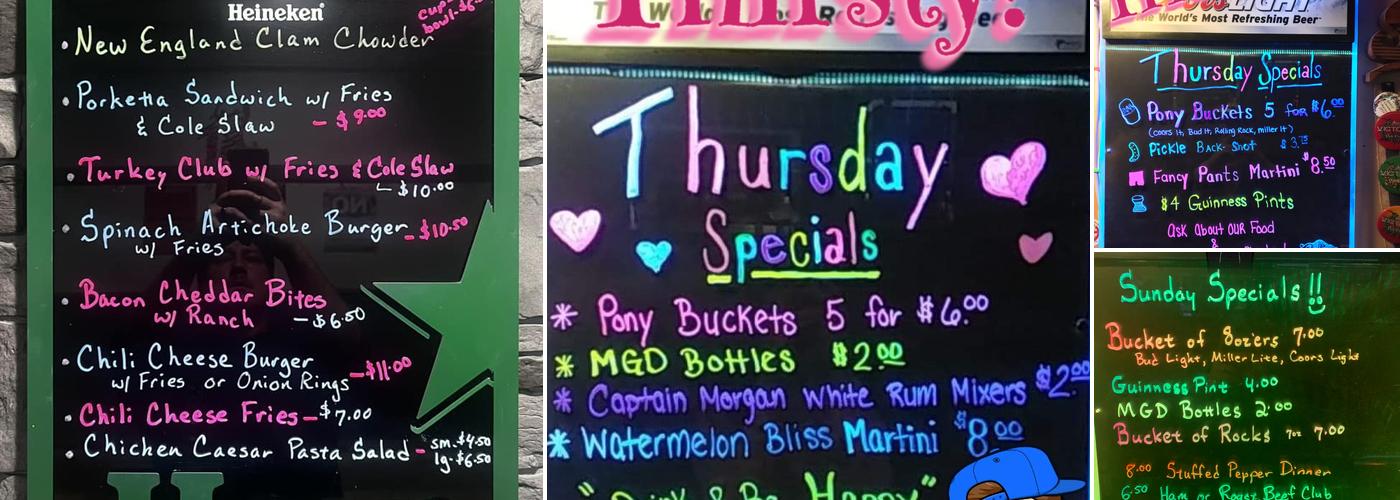 Heineken
cup-
bowl-$6
• New England Clam Chowder
• Porketta Sandwich w/ Fries
& Cole Slaw - $9.00
• Turkey Club w/ Fries & Cole Slaw
- $10.00
• Spinach Artichoke Burger - $10.50
w/ Fries
• Bacon Cheddar Bites
w/ Ranch - $6.50
• Chili Cheese Burger
w/ Fries or Onion Rings - $11.00
• Chili Cheese Fries - $7.00
• Chicken Caesar Pasta Salad - sm. $4.50
lg. $6.50
Thirsty!
Thursday
Specials
* Pony Buckets 5 for $6.00
* MGD Bottles $2.00
* Captain Morgan White Rum Mixers $2.00
* Watermelon Bliss Martini $8.00
Happy"
LIGHT
The World's Most Refreshing Beer
Thursday Specials
Pony Buckets 5 for $6.00
(Coors lt, Bud lt, Rolling Rock, Miller lt)
Pickle Back Shot $3.75
Fancy Pants Martini $8.50
$4 Guinness Pints
Ask About OUR Food
&
Sunday Specials!!
Bucket of 8oz'ers 7.00
Bud Light, Miller Lite, Coors Light
Guinness Pint 4.00
MGD Bottles 2.00
Bucket of Rocks 7oz 7.00
8.00 Stuffed Pepper Dinner
6.50 Ham or Roast Beef Club